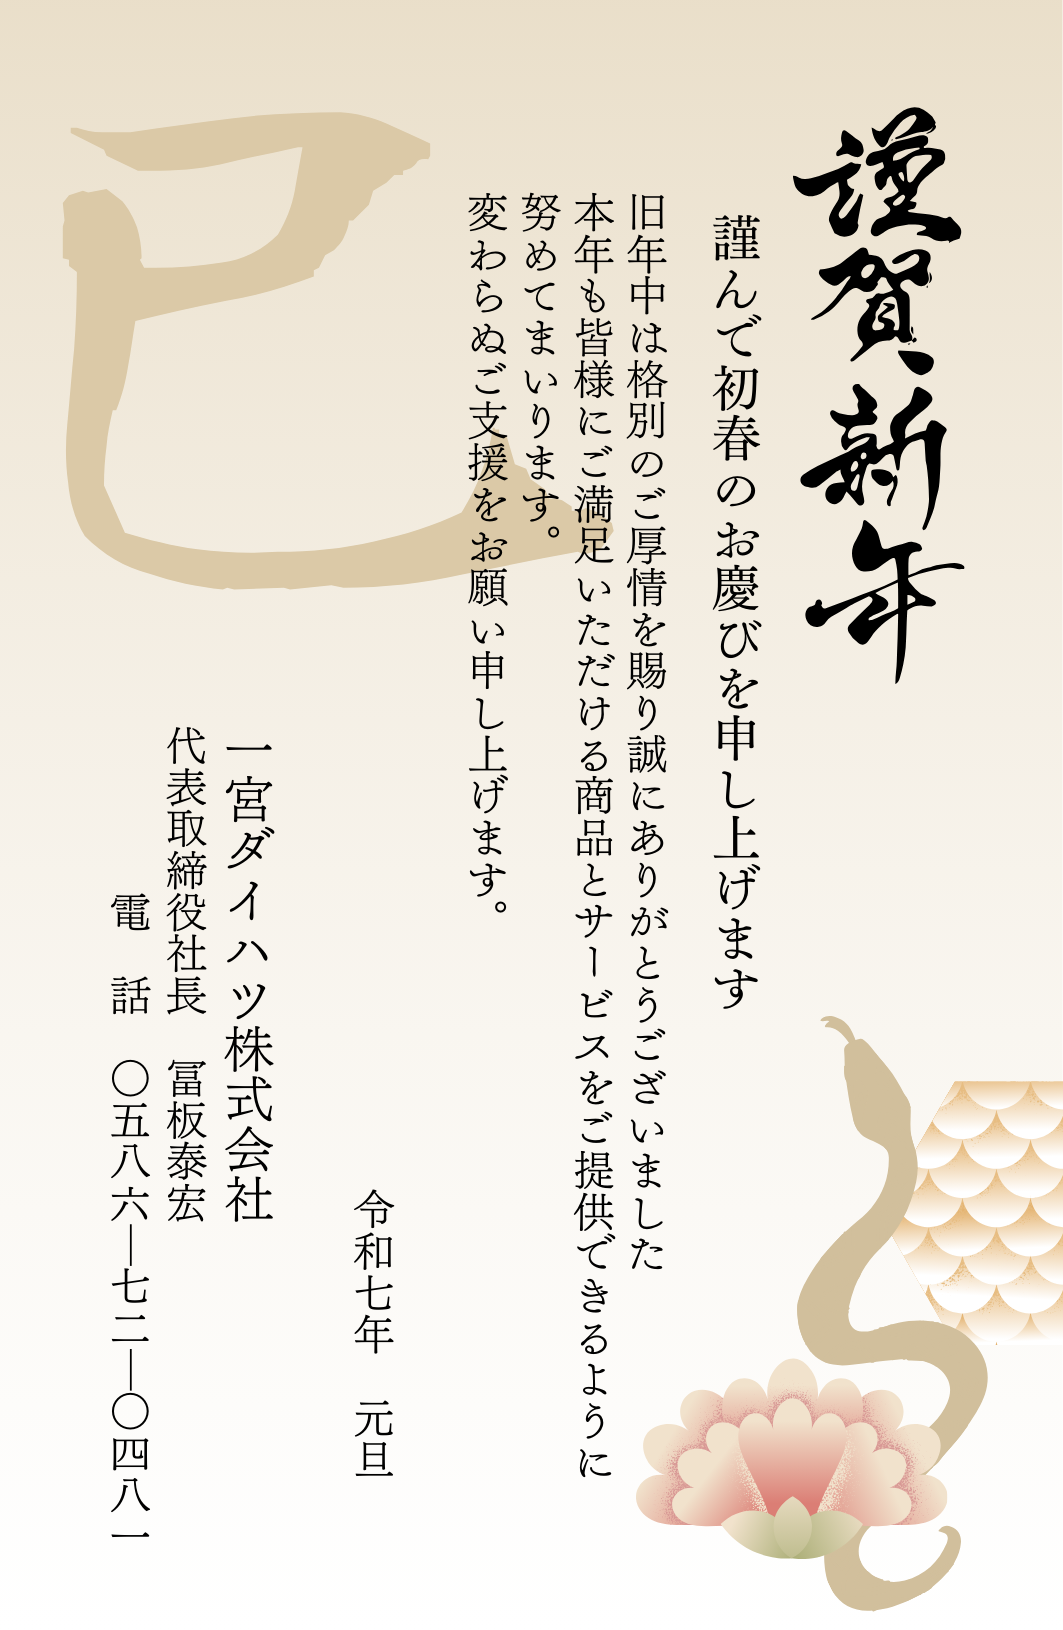 謹賀新年
謹んで初春のお慶びを申し上げます
旧年中は格別のご厚情を賜り誠にありがとうございました
本年も皆様にご満足いただける商品とサービスをご提供できるように
努めてまいります。
変わらぬご支援をお願い申し上げます。
巳
令和七年　元旦
一宮ダイハツ株式会社
代表取締役社長　冨板泰宏
電　話　〇五八六―七二―〇四八一